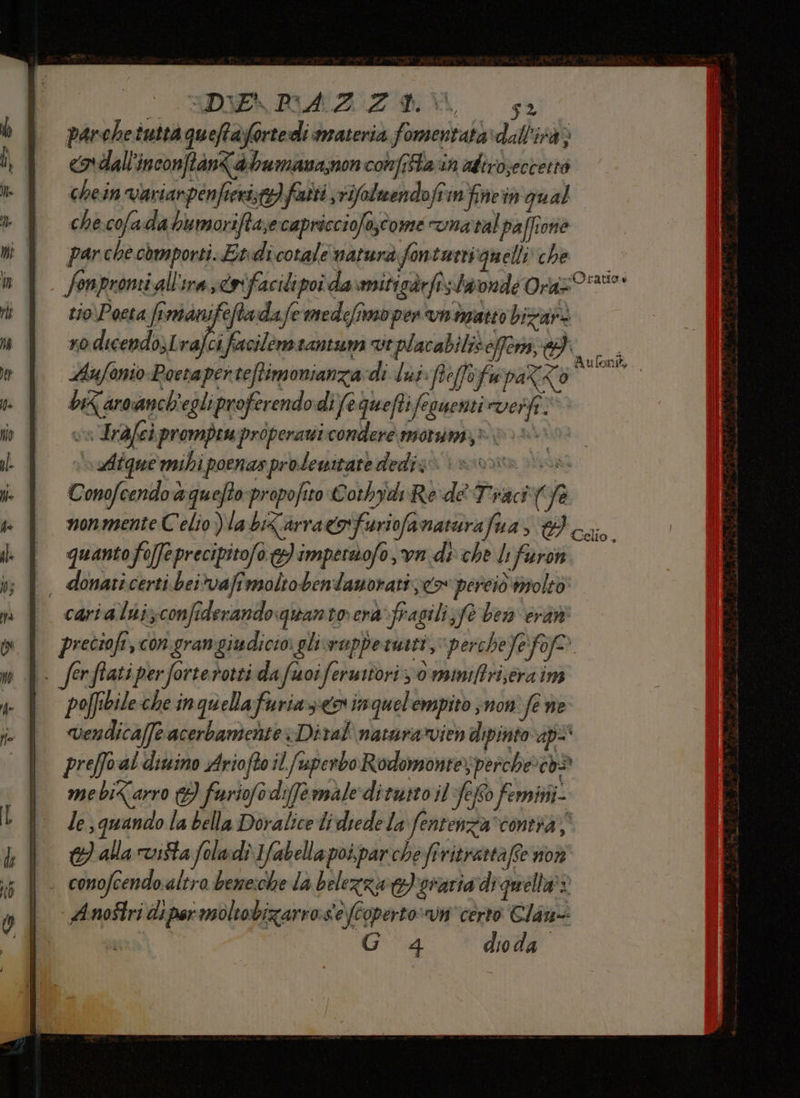 DE' PAZZI. 52
par che tutta questa sorte di materia fomentata dall'ira;
& dall'inconstanza humana, non consista in altro, eccetto
che in variar pensieri, & fatti, risoluendosi in fine in qual
che cosa da humorista, e capriccioso, come vna tal passione
par che comporti. Et di cotale natura son tutti quelli che
son pronti all'ira, & facili poi da mitigarsi, laonde Ora-
Oratio.
tio Poeta si manifesta da se medesimo per vn matto bizar-
ro dicendo, Irasci facilem tantum vt placabilis essem, &
Ausonio Poeta per testimonianza di lui stesso fu pazzo
Ausonio.
bizaro anch'egli proferendo di se questi seguenti versi.
Irasci promptu properaui condere motum,
Atque mihi poenas pro leuitate dedi;
Conoscendo à questo proposito Cothydi Re de Traci (se
non mente Celio) la bizarra & furiosa natura sua, &
Celio.
quanto fosse precipitoso & impetuoso, vn di che li furon
donati certi bei vasi molto ben lauorati, & perciò molto
cari a lui, considerando quanto erà fragili, se ben eran
preciosi, con gran giudicio gli ruppe tutti, perche se fos-
ser stati per sorte rotti da suoi seruitori, ò ministri, era im
possibile che in quella furia, & in quel empito, non se ne
vendicasse acerbamente. Di tal natura vien dipinto ap-
presso al diuino Ariosto il superbo Rodomonte, perche co-
me bizarro & furioso disse male di tutto il sesso femini-
le, quando la bella Doralice li diede la sentenza contra,
& alla vista sola di Isabella poi par che si ritrattasse non
conoscendo altro bene che la belezza & gratia di quella:
A nostri di per molto bizarro s'è scoperto vn certo Clau-
G 4 dio da